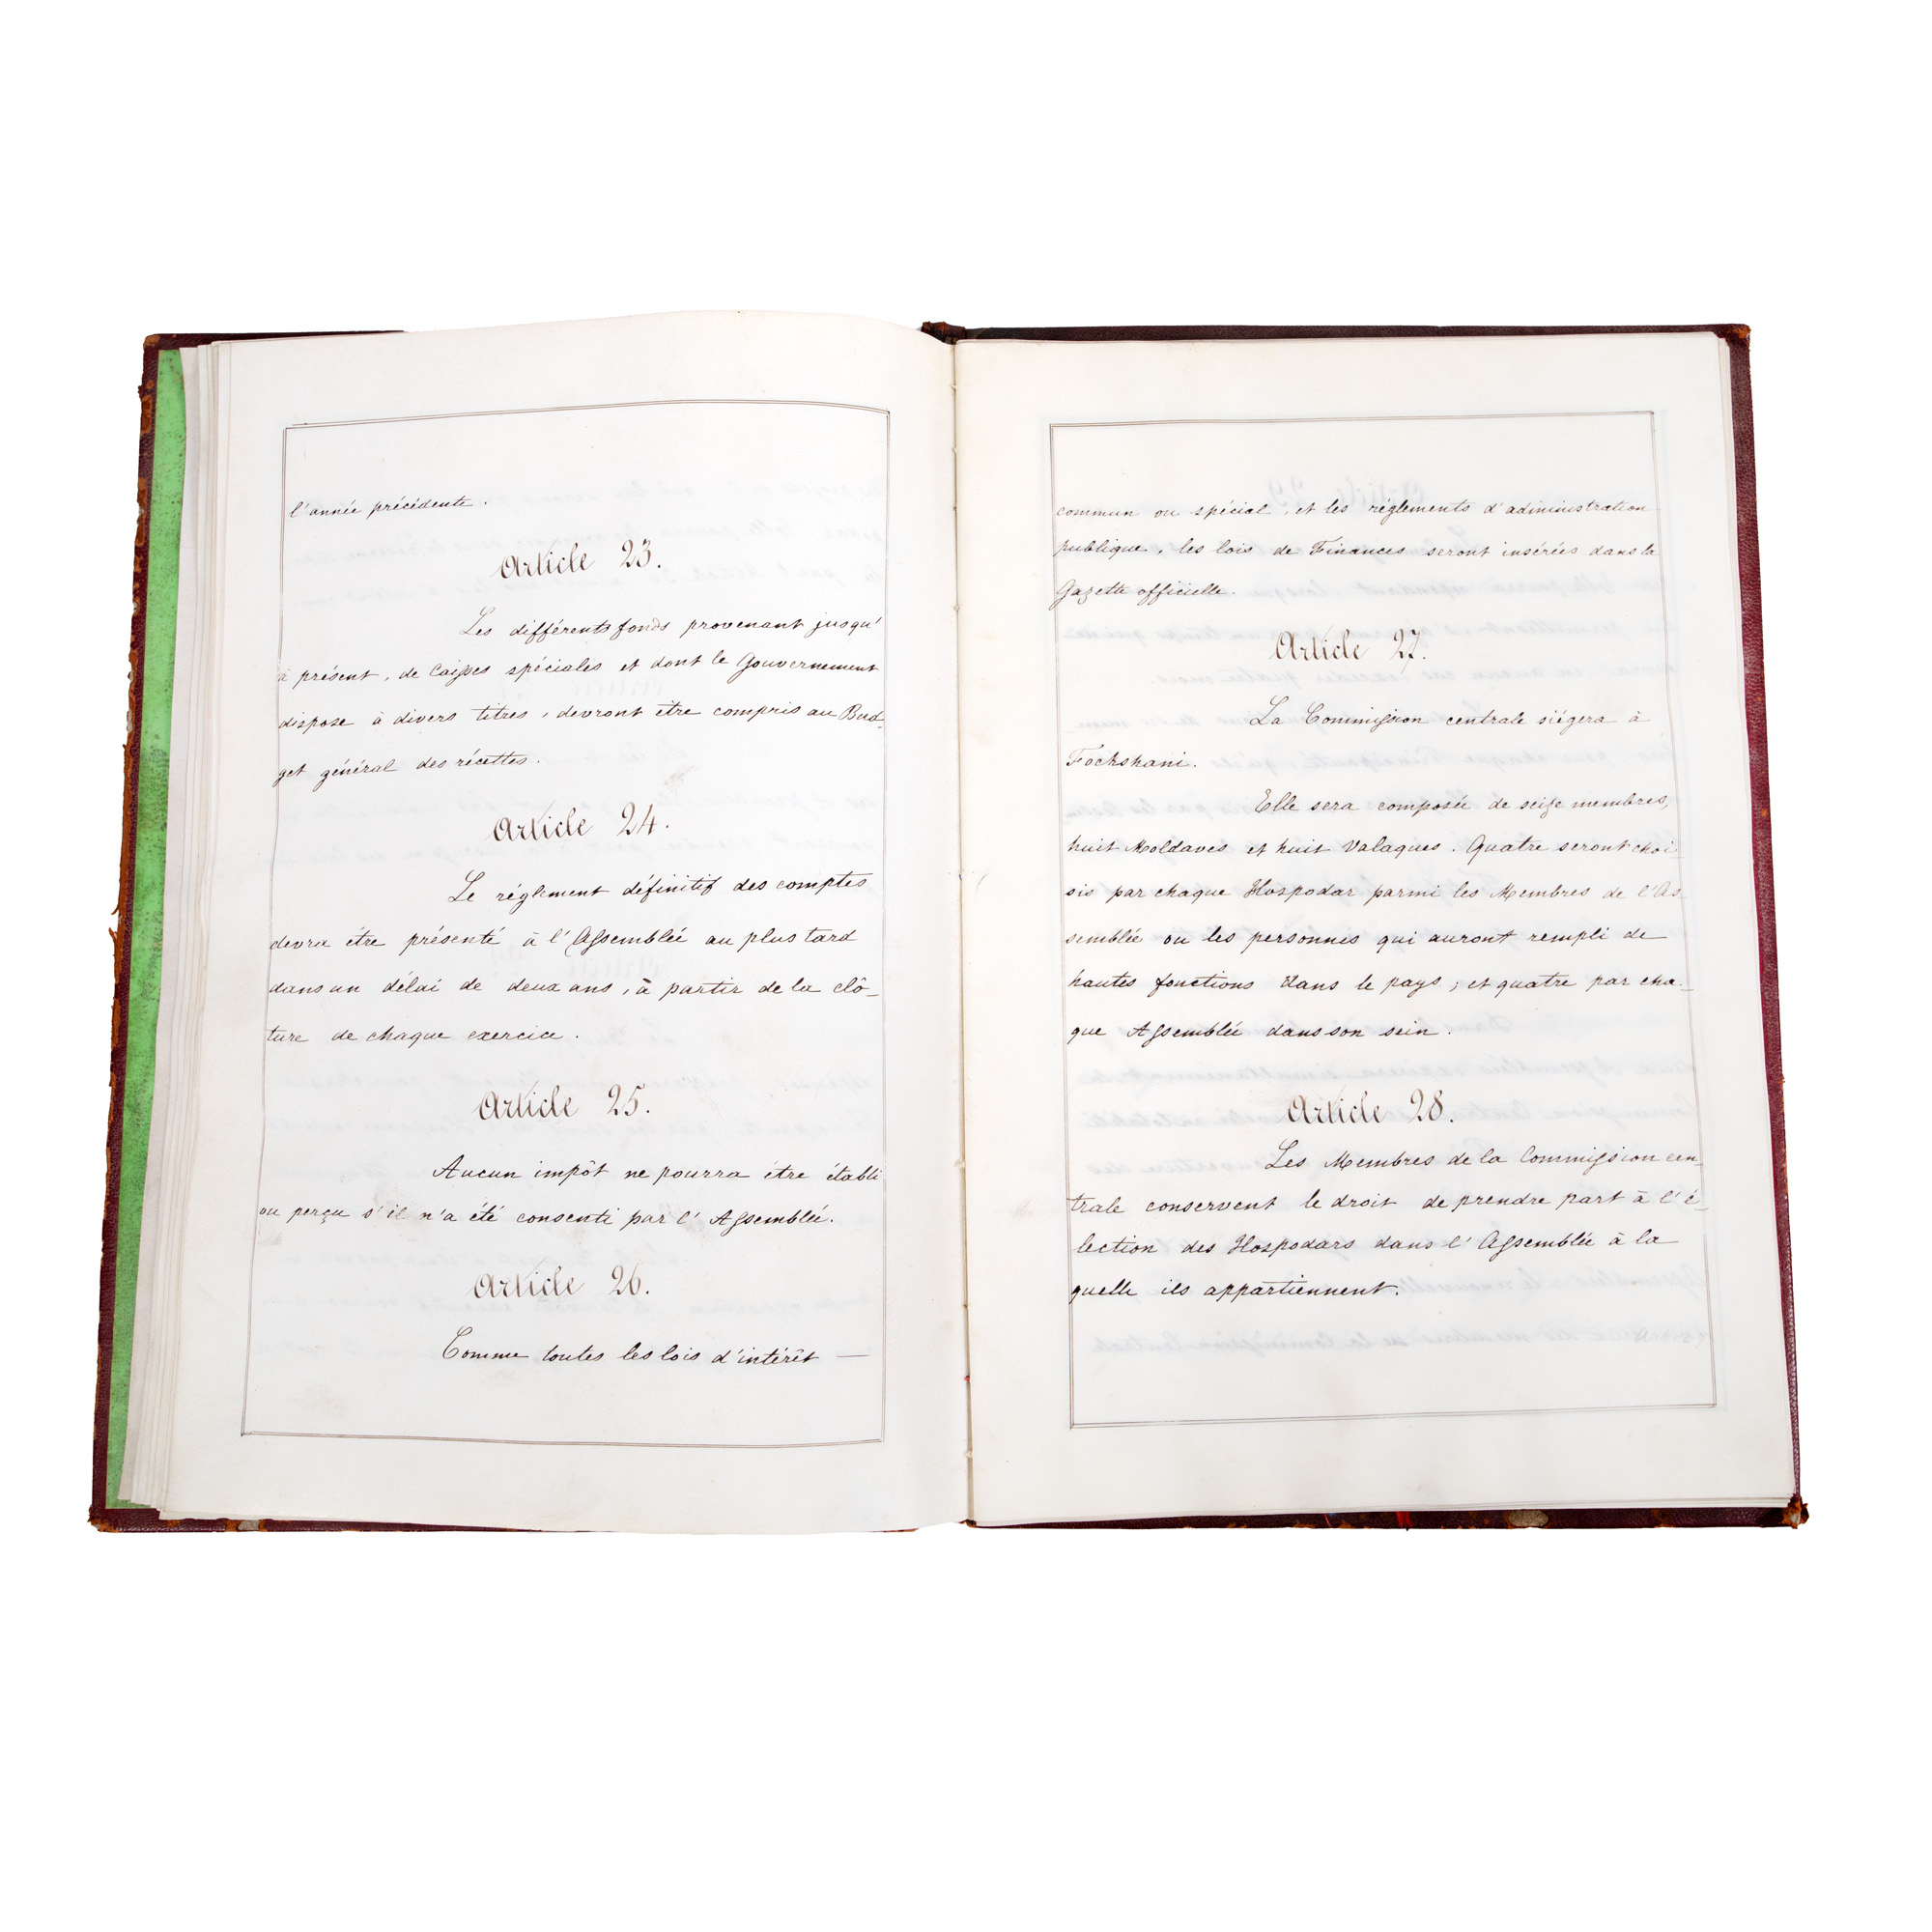 l'année précédente.
Article 23.
Les différents fonds provenant jusqu'
à présent, de Caisses spéciales et dont le Gouvernement
dispose à divers titres, devront être compris au Bud-
get général des récettes.
Article 24.
Le réglement définitif des comptes
devra être présenté à l'Assemblée au plus tard
dans un délai de deux ans, à partir de la clô-
ture de chaque exercice.
Article 25.
Aucun impôt ne pourra être établi
ou perçu s'il n'a été consenti par l'Assemblée.
Article 26.
Comme toutes les lois d'intérêt —
commun ou spécial, et les réglements d'administration
publique, les lois de Finances seront insérées dans la
Gazette officielle.
Article 27.
La Commission centrale siégera à
Fockshani.
Elle sera composée de seize membres,
huit Moldaves et huit Valaques. Quatre seront choi-
sis par chaque Hospodar parmi les Membres de l'As-
semblée ou les personnes qui auront rempli de
hautes fonctions dans le pays; et quatre par cha-
que Assemblée dans son sein.
Article 28.
Les Membres de la Commission cen-
trale conservent le droit de prendre part à l'é-
lection des Hospodars dans l'Assemblée à la
quelle ils appartiennent.